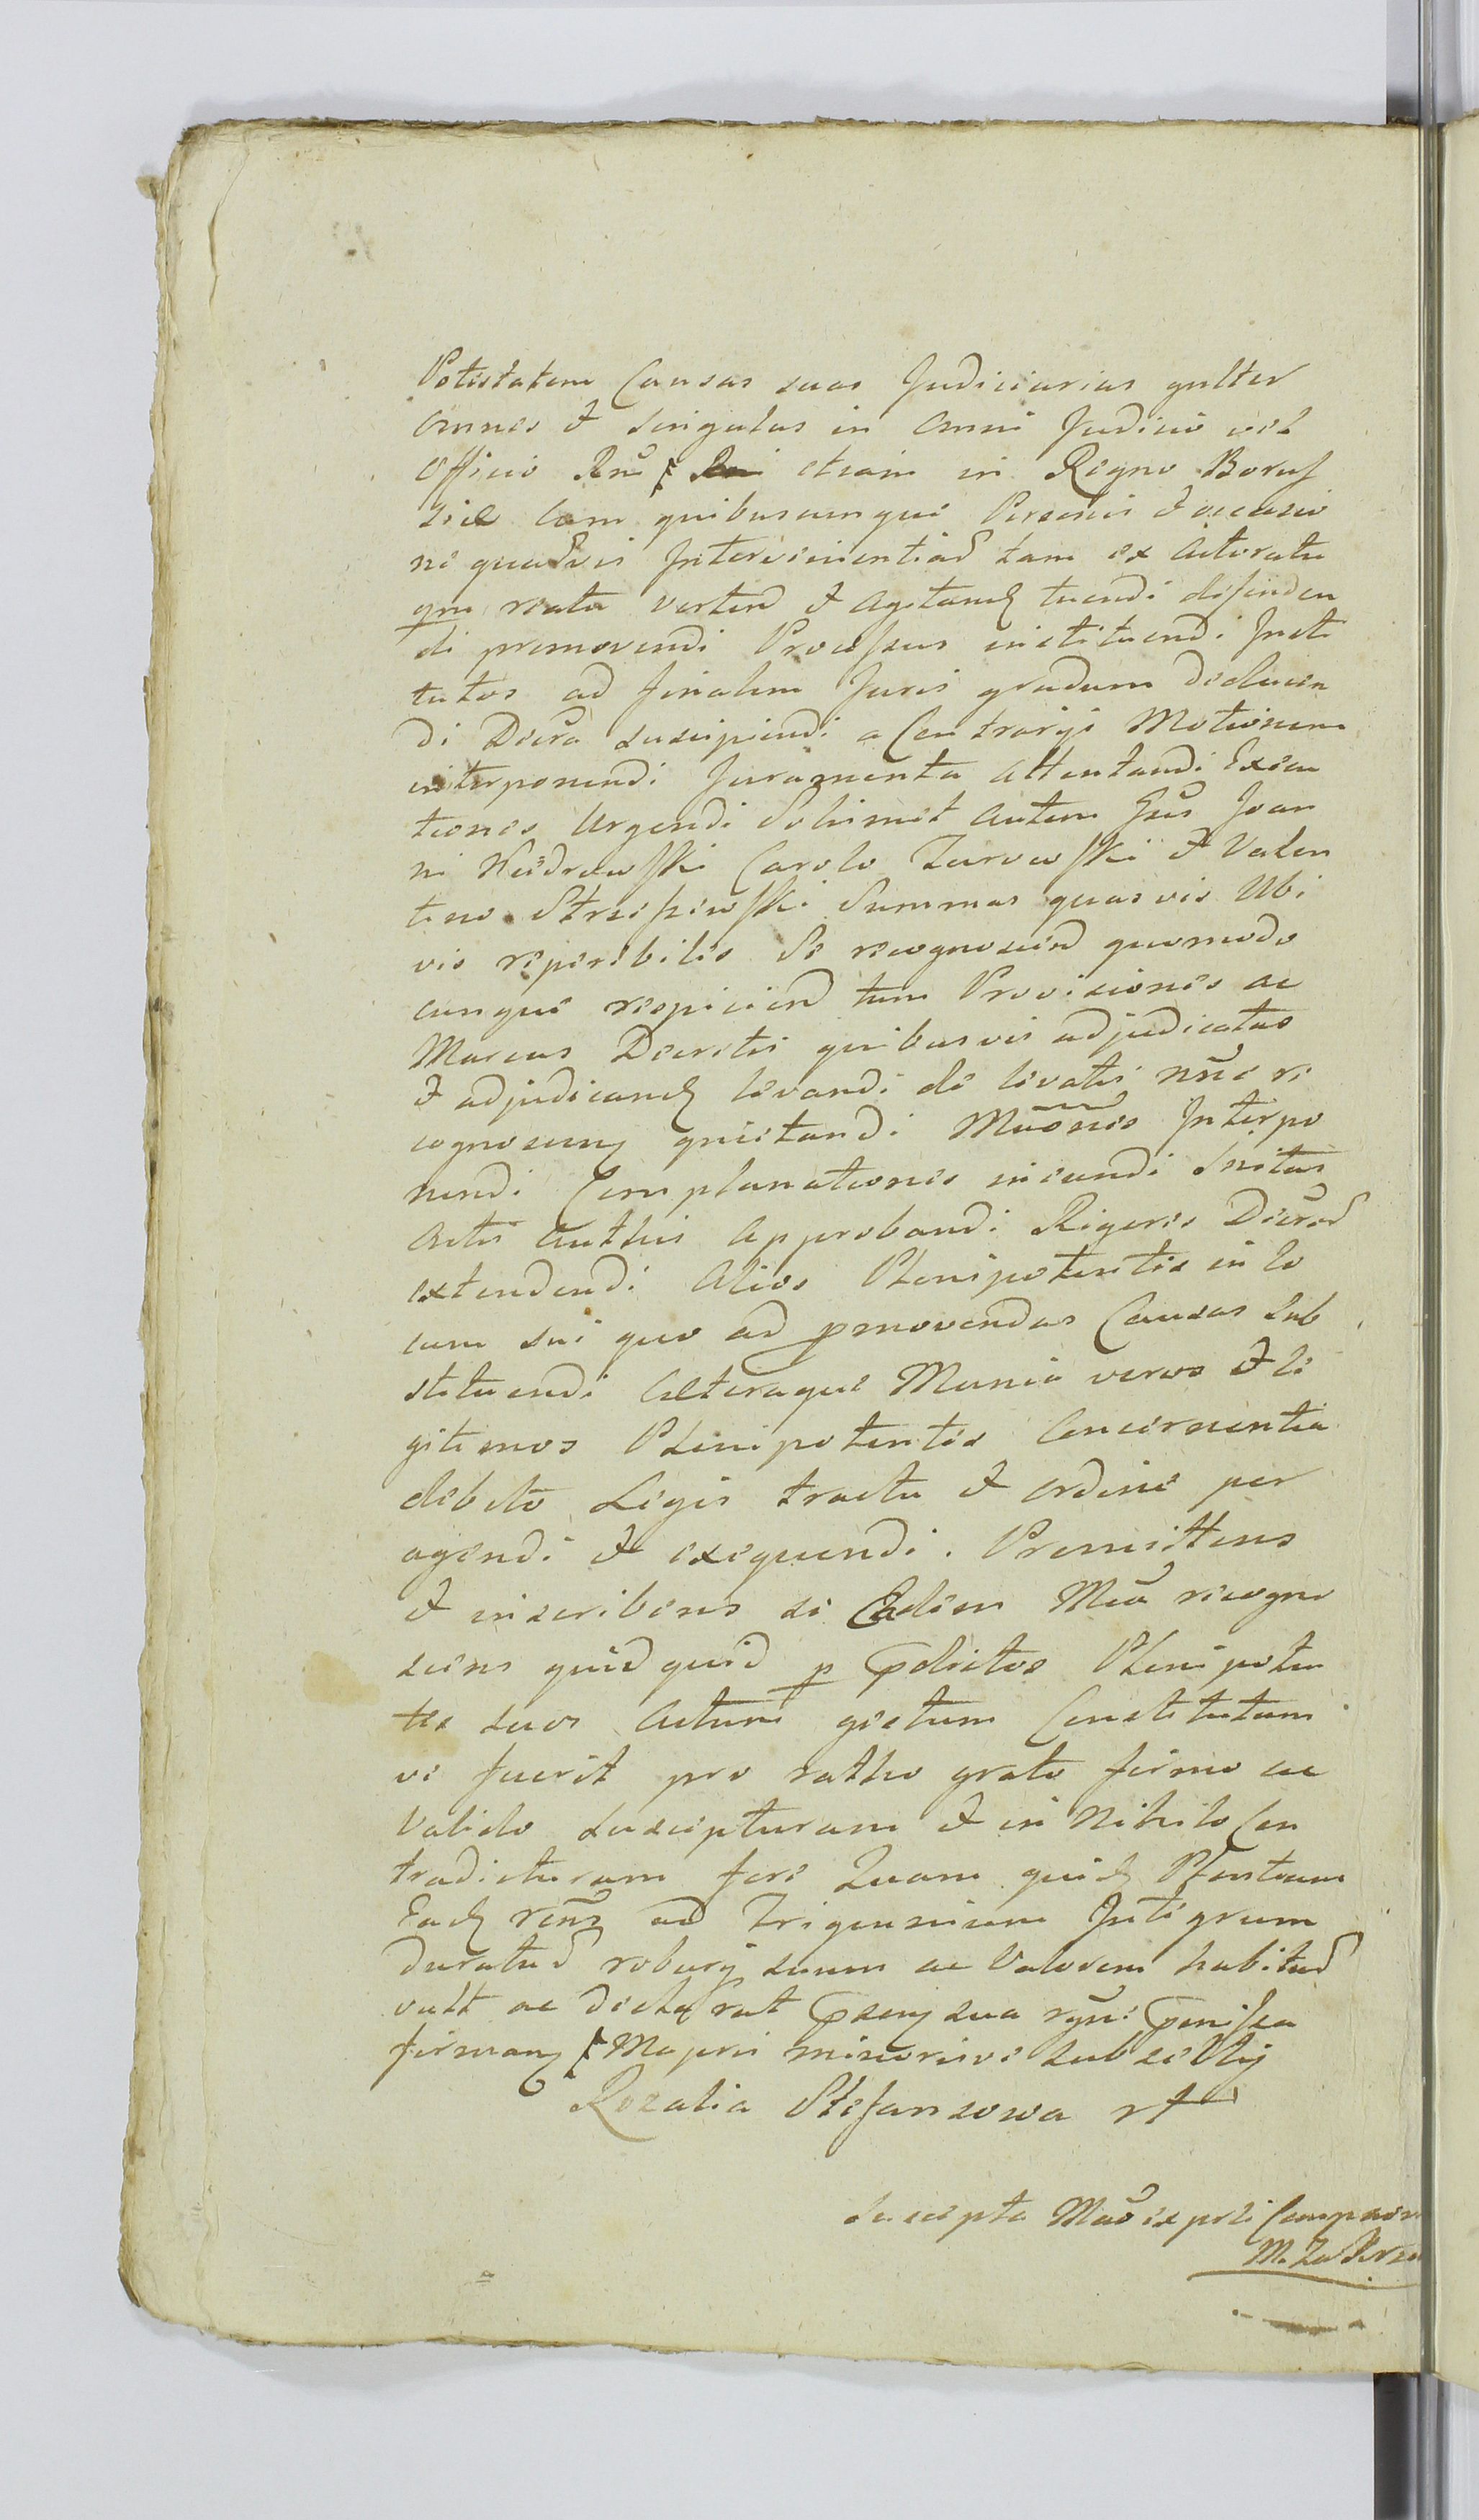 Potestatem Causas suas Judiciarias gnlter
omnes et singulas in omni Judicio vel
Officio Rni etiam in Regno Borus
siae Cum quibuscunque Personis et occasio
ne quadvis Intervenientiad tam ex Actoratu
qm reatu vertend et agitand tuendi defenden
di promovendi Processus instituendi Insti
tutos ad finalem Juris gradum deducen
di Decra suscipiendi a Contrarys Motionem
interponendi Juramenta attentandi Execu
tiones Urgendi Solummet autem Gsis Joan
ni Kiedrowski Carolo Zurowski et Valen
tino Strzeszewski Summas quasvis Ubi
vis reperibiles Se recognoscend quomodo
cunque respiciend tum Provisiones ac
Marcas Decretis quibusvis adjudicatas
et adjudicand levandi de levatis nne re
cognoscen quietandi Mnones Interpo
nendi Complanationes ineundi Initas
Actis Authis Approbandi Rigores Decred
extendendi Alios Plenipotentes in lo
cum sui quo ad pmovendas Causas sub
stituendi Alteraque Munia veros et le
gitimos Plenipotentes Concernentia
debito Legis tractu et ordine per
agendi et exequendi. Promittens
et inscribens se Eadem Mca recogno
scens quidquid p pdictos Plenipoten
tes suos actum gestum Constitutum
ve fuerit pro ratho grato firmo ac
valido suscepturam et in Nihilo Con
tradicturam fore Quam quid Pltentiam
Ead rens ad Trigennium Integrum
duratud robury suum ac Valorem habitud
vult ac declarat psens sua rgni pmissa
firman Majori minorive sub se Vly
Rozalia Stefanzowa
Suscepta Mao ex psti Compaon
M. Za